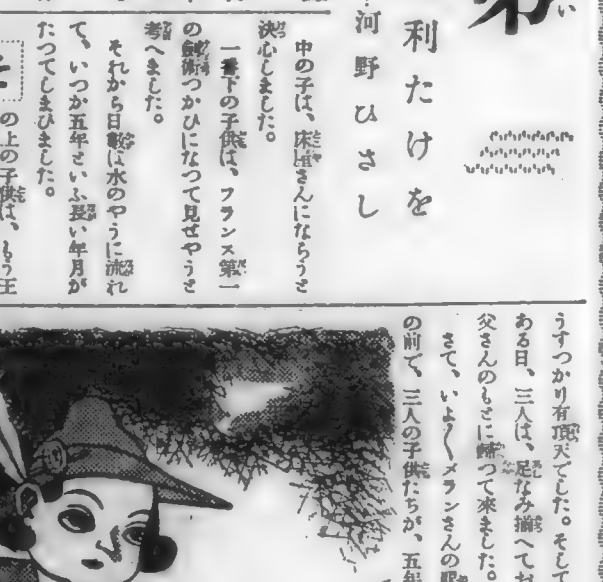 い
利たけを
河野ひさし
中の子は、床屋さんにならうと
決心しました。
一番下の子供は、フランス第一
の劍術つかひになつて見せやうと
考へました。
それから日數は水のやうに流れ
て、いつか五年といふ長い年月が
たつてしまひました。
の上の子供は、もう王
うすつかり有頂天でした。そして
ある日、三人は、足なみ揃へてお
父さんのもとに歸つて來ました。
さて、いよ〳〵メランさんの眼
の前で、三人の子供たちが、五年